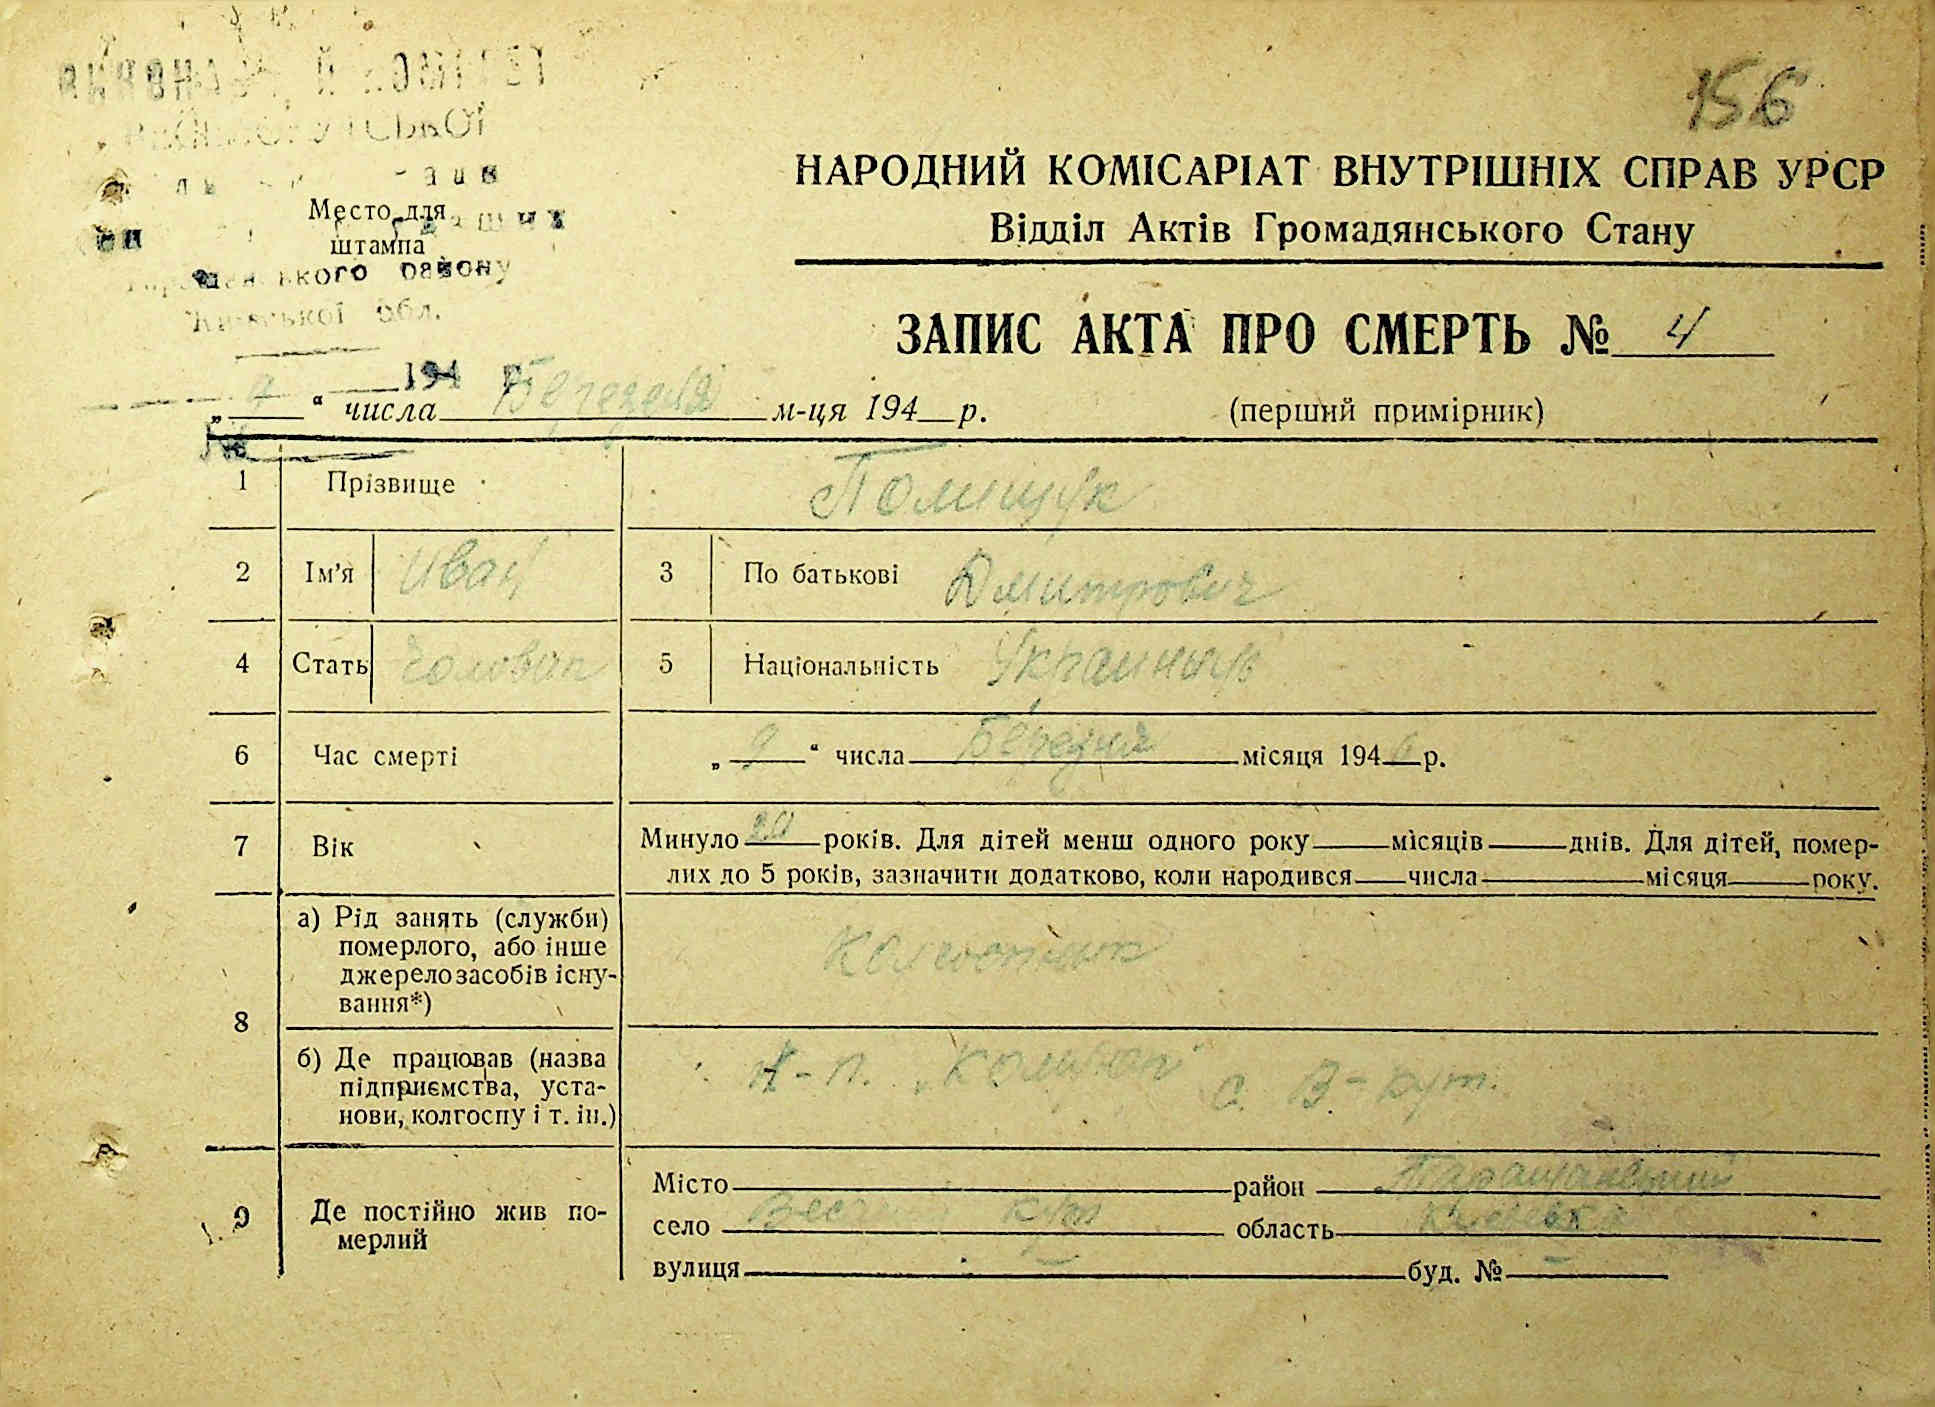 156
НАРОДНИЙ КОМІСАРІАТ ВНУТРІШНІХ СПРАВ УРСР
Відділ Актів Громадянського Стану
Место для
штампа
району
обл.
ЗАПИС АКТА ПРО СМЕРТЬ № 4
194
„ “ числа м-ця 194 р. (перший примірник)
№
1 Прізвище Полищук
2 Ім'я Иван 3 По батькові Дмитрович
4 Стать Чоловік 5 Національність
6 Час смерті „9“ числа Березня місяця 1946 р.
7 Вік Минуло 20 років. Для дітей менш одного року місяців днів. Для дітей, помер-
лих до 5 років, зазначити додатково, коли народився числа місяця року.
8 а) Рід занять (служби)
померлого, або інше
джерело засобів існу-
вання*)
Колгоспник
б) Де працював (назва
підприємства, уста-
нови, колгоспу і т. ін.)
с. В-кут.
9 Де постійно жив по-
мерлий
Місто район Таращанський
село кут область
вулиця буд. №